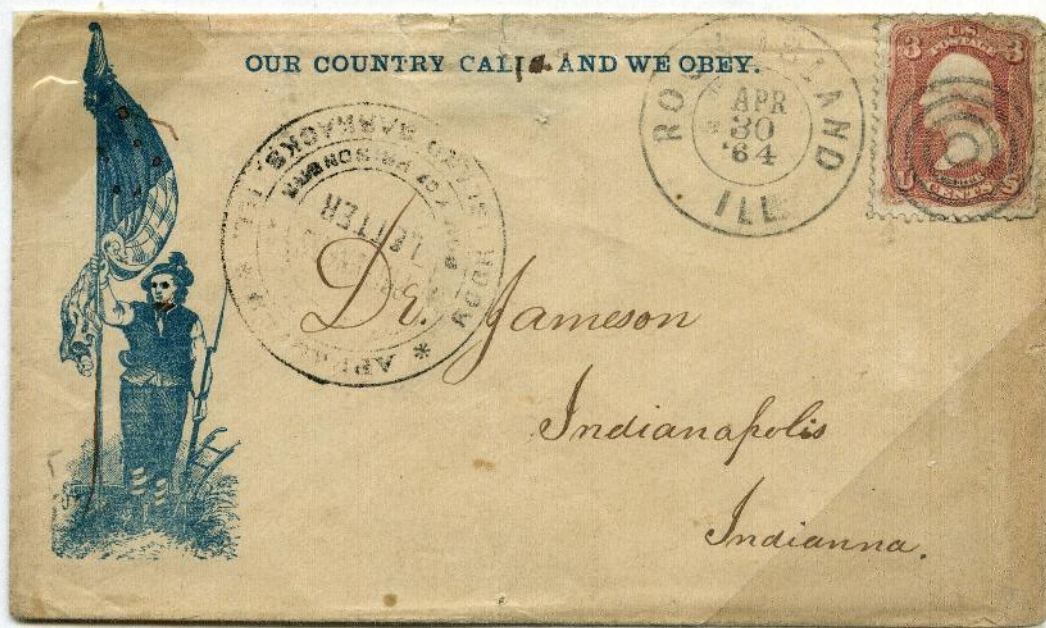 OUR COUNTRY CALLS AND WE OBEY.
ROCK ISLAND
ILL
APR
30
'64
3 U.S. 3
POSTAGE
U CENTS S
ROCK ISLAND BARRACKS, ILL.
PRISONER'S
LETTER
Dr. Jameson
Indianapolis
Indianna.